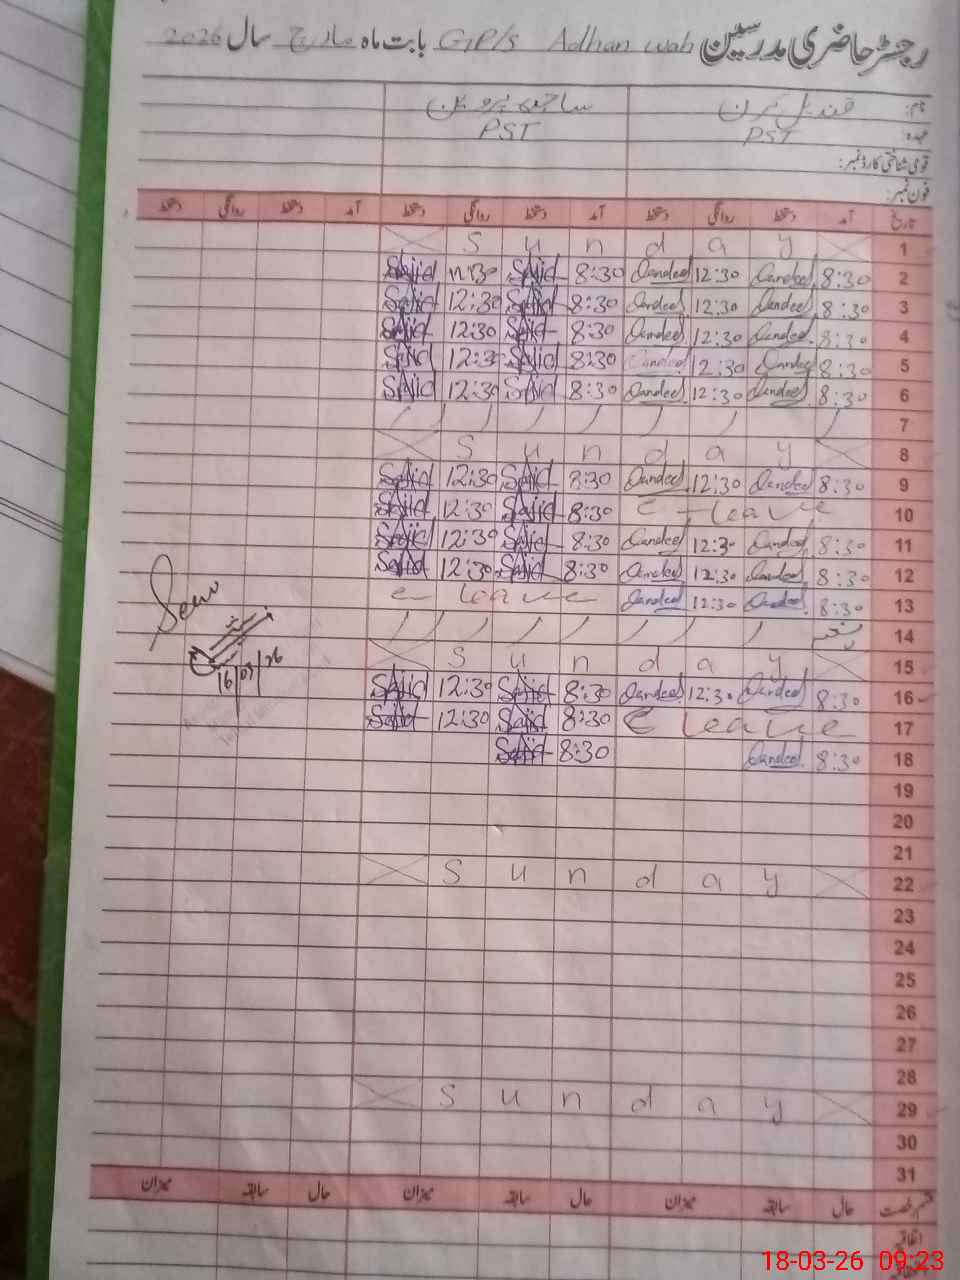 رجسٹر حاضری مدرسین G,P/s Adhan wah بابت ماہ مارچ سال 2026
نام:
عہدہ: PST PST
قومی شناختی کارڈ نمبر:
فون نمبر:
تاریخ آمد دستخط روانگی دستخط آمد دستخط روانگی دستخط آمد دستخط روانگی دستخط
S u n d a y 1
Sajid 12:30 Sajid 8:30 Qandeel 12:30 Qandeel 8:30 2
Sajid 12:30 Sajid 8:30 Qandeel 12:30 Qandeel 8:30 3
Sajid 12:30 Sajid 8:30 Qandeel 12:30 Qandeel 8:30 4
Sajid 12:30 Sajid 8:30 Qandeel 12:30 Qandeel 8:30 5
Sajid 12:30 Sajid 8:30 Qandeel 12:30 Qandeel 8:30 6
/ / / / / / / / 7
S u n d a y 8
Sajid 12:30 Sajid 8:30 Qandeel 12:30 Qandeel 8:30 9
Sajid 12:30 Sajid 8:30 C - leave 10
Sajid 12:30 Sajid 8:30 Qandeel 12:30 Qandeel 8:30 11
Sajid 12:30 Sajid 8:30 Qandeel 12:30 Qandeel 8:30 12
e - leave Qandeel 12:30 Qandeel 8:30 13
/ / / / / / / 14
S u n d a y 15
Sajid 12:30 Sajid 8:30 Qandeel 12:30 Qandeel 8:30 16
16/03/26
Sajid 12:30 Sajid 8:30 C leave 17
Sajid 8:30 Qandeel 8:30 18
19
20
21
S u n d a y 22
23
24
25
26
27
28
S u n d a y 29
30
31
قسم رخصت حال سابقہ میزان حال سابقہ میزان حال سابقہ میزان
اتفاقیہ
18-03-26 09:23